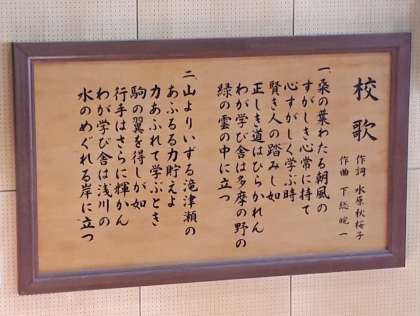 校歌
作詞 水原秋桜子
作曲 下総皖一
一、桑の葉わたる朝風の
すがしき心常に持て
心すがしく学ぶ時
賢き人の踏みし如
正しき道はひらかれん
わが学び舎は多摩の野の
緑の雲の中に立つ
二、山よりいずる滝津瀬の
あふるる力貯えよ
力あふれて学ぶとき
駒の翼を得しが如
行手はさらに輝かん
わが学び舎は浅川の
水のめぐれる岸に立つ